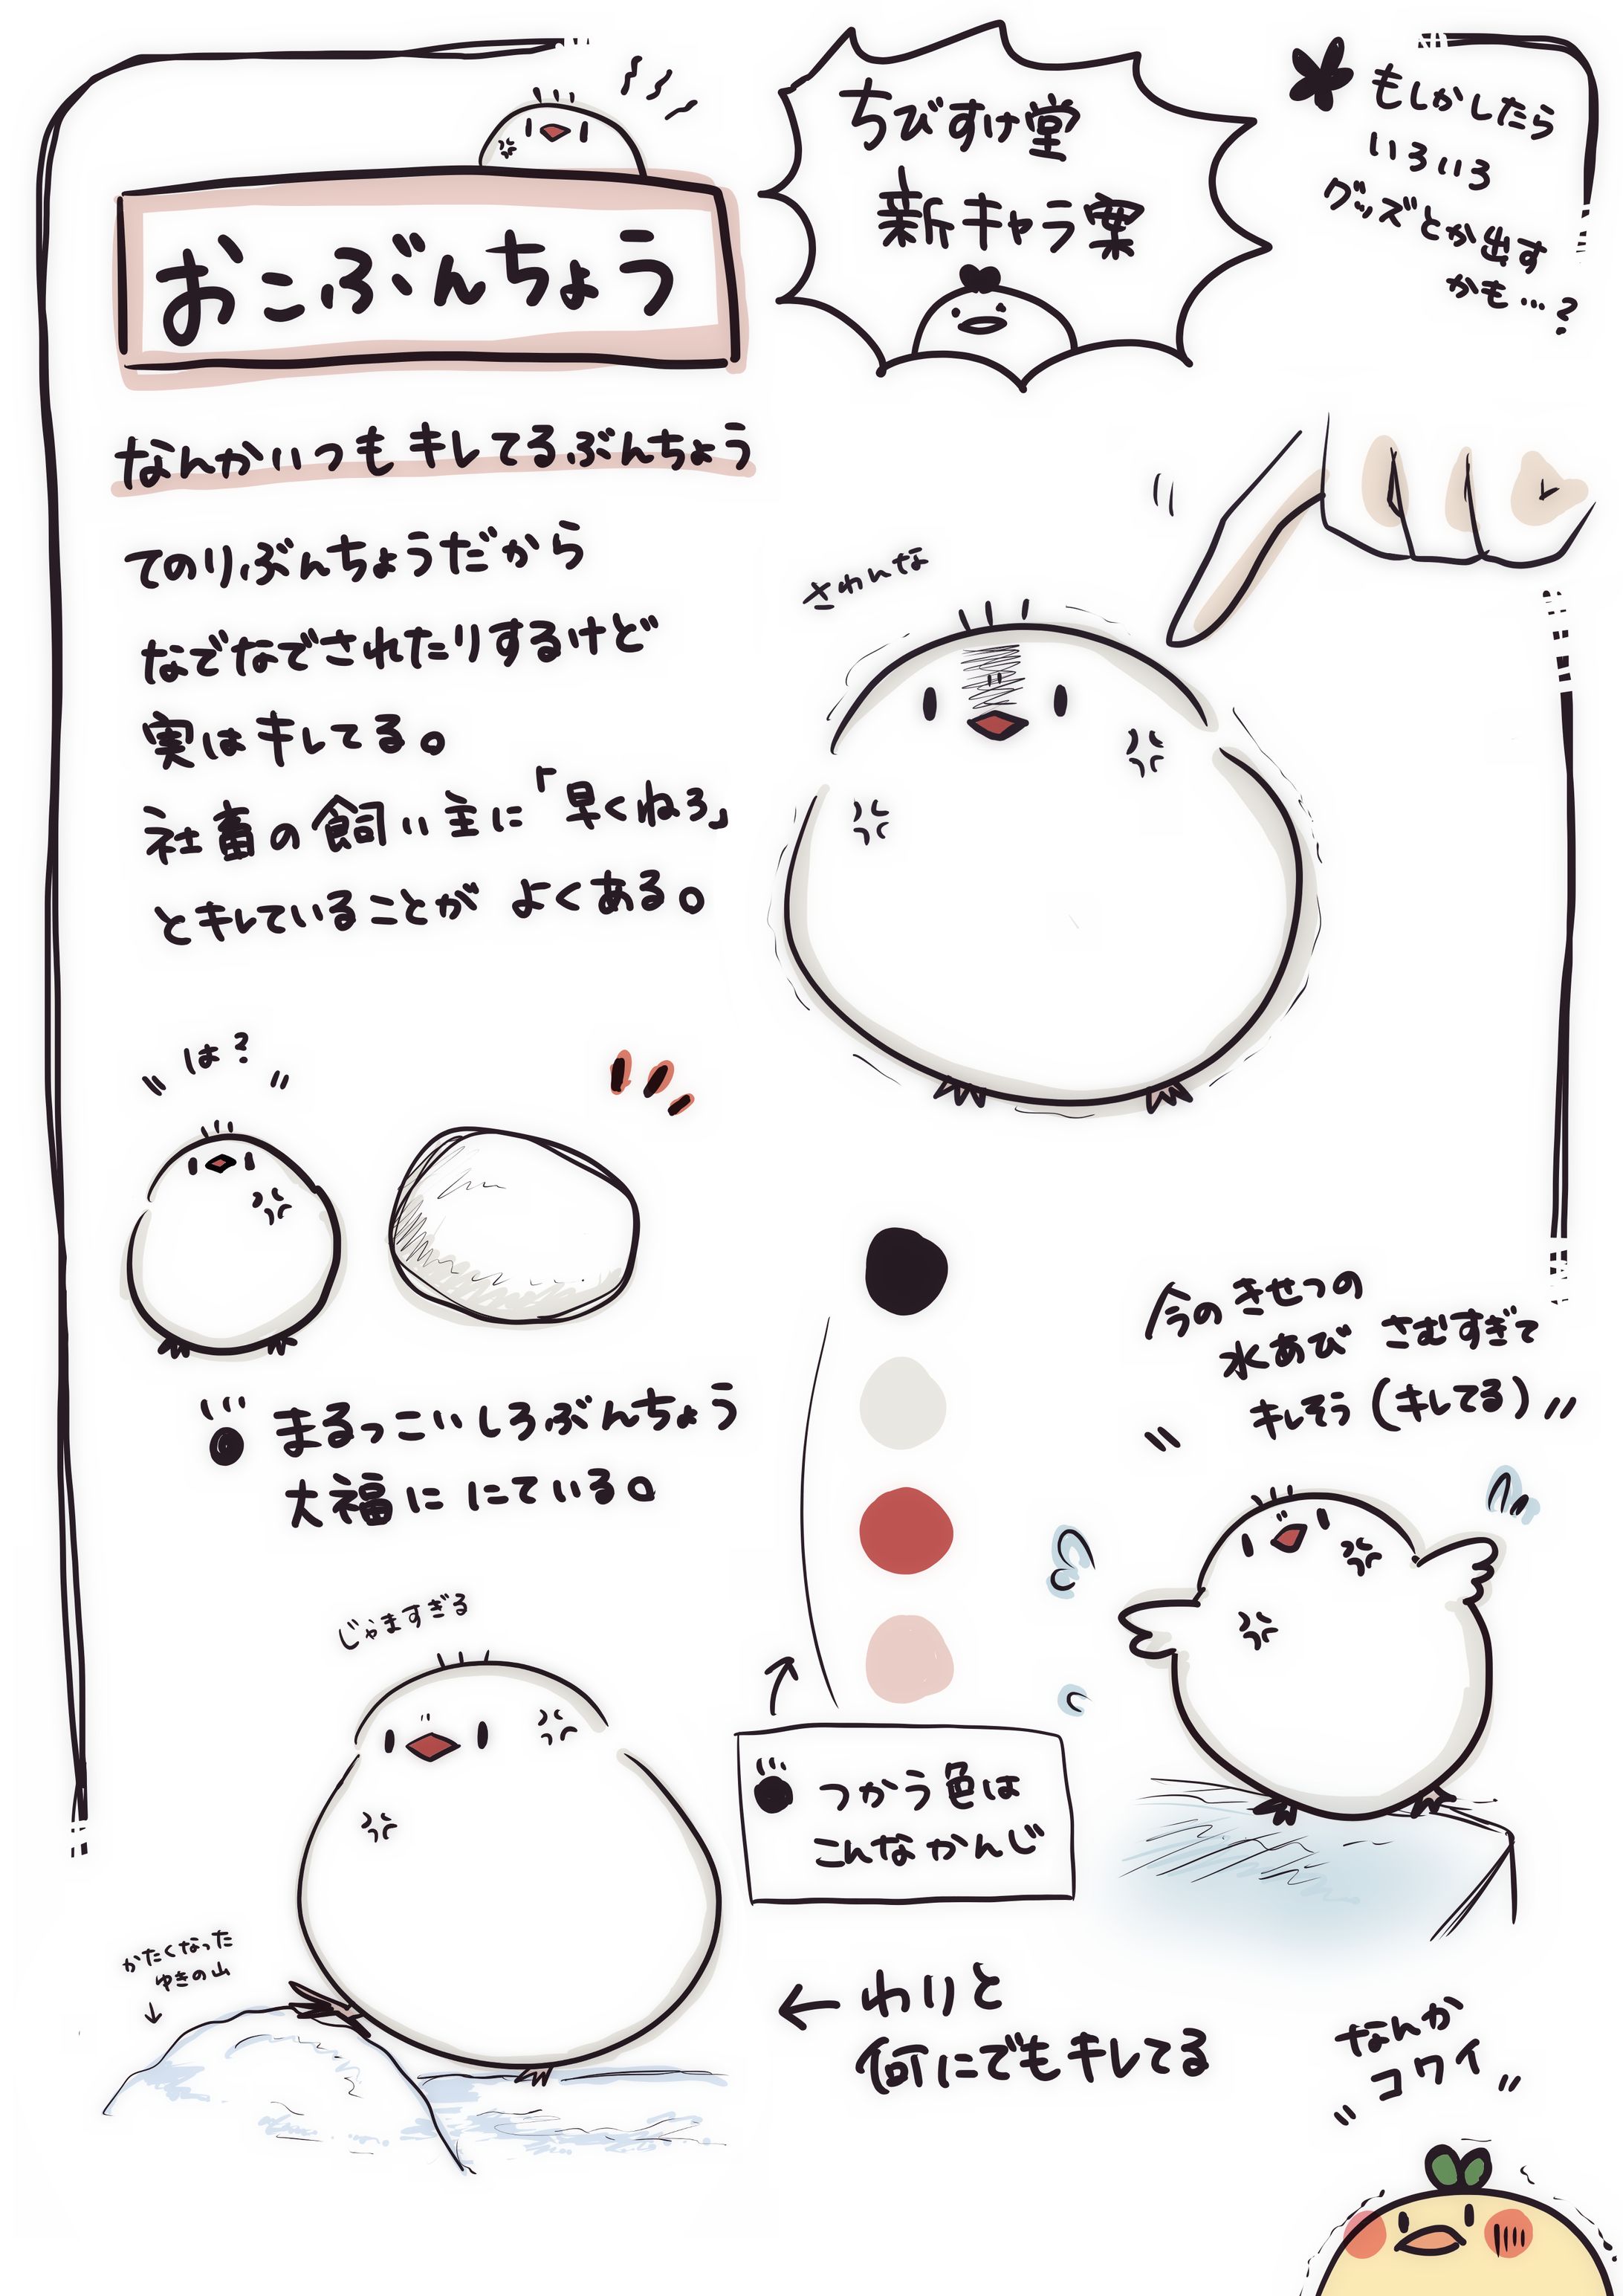 おこぶんちょう
ちびすけ堂
新キャラ案
もしかしたら
いろいろ
グッズとか出す
かも…?
なんかいつもキレてるぶんちょう
てのりぶんちょうだから
なでなでされたりするけど
実はキレてる。
社畜の飼い主に「早くねろ」
とキレていることが よくある。
さわんな
は?
まるっこいしろぶんちょう
大福に にている。
今のきせつの
水あび さむすぎて
キレそう(キレてる)
じゃますぎる
つかう色は
こんなかんじ
かたくなった
ゆきの山
↓
← わりと
何にでもキレてる
なんか
コワイ